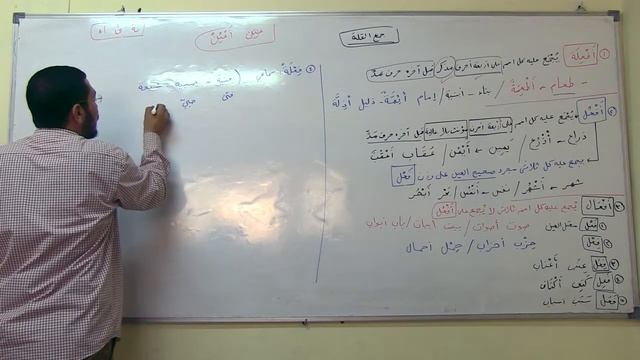 جمع القلة
① أَفْعِلَة يُجمَع عليه كل اسم على أربعة أحرف مذكر قبل آخره حرف مد
طعام - أطعمة / بناء - أبنية / إمام أئمة - دليل أدلة
② أَفْعُل يُجمَع عليه كل اسم على أربعة أحرف مؤنث بلا علامة قبل آخره حرف مد
ذراع → أذرع / يمين → أيمن / عقاب أعقب
يجمع عليه كل ثلاثي مجرد صحيح العين على وزن فَعْل
شهر → أشهر / نفس - أنفس / بحر أبحر
③ أفعال يجمع عليه كل اسم ثلاثي لا يجمع على أفعل
① فعل معتل العين صوت أصوات / بيت أبيات / باب أبواب
② فعل حزب أحزاب / حمل أحمال
③ فعل عنب أعناب
④ فعل كتف أكتاف
⑤ فعل سبب أسباب
④ فِعْلَة فتية - صبية
فتى صبي